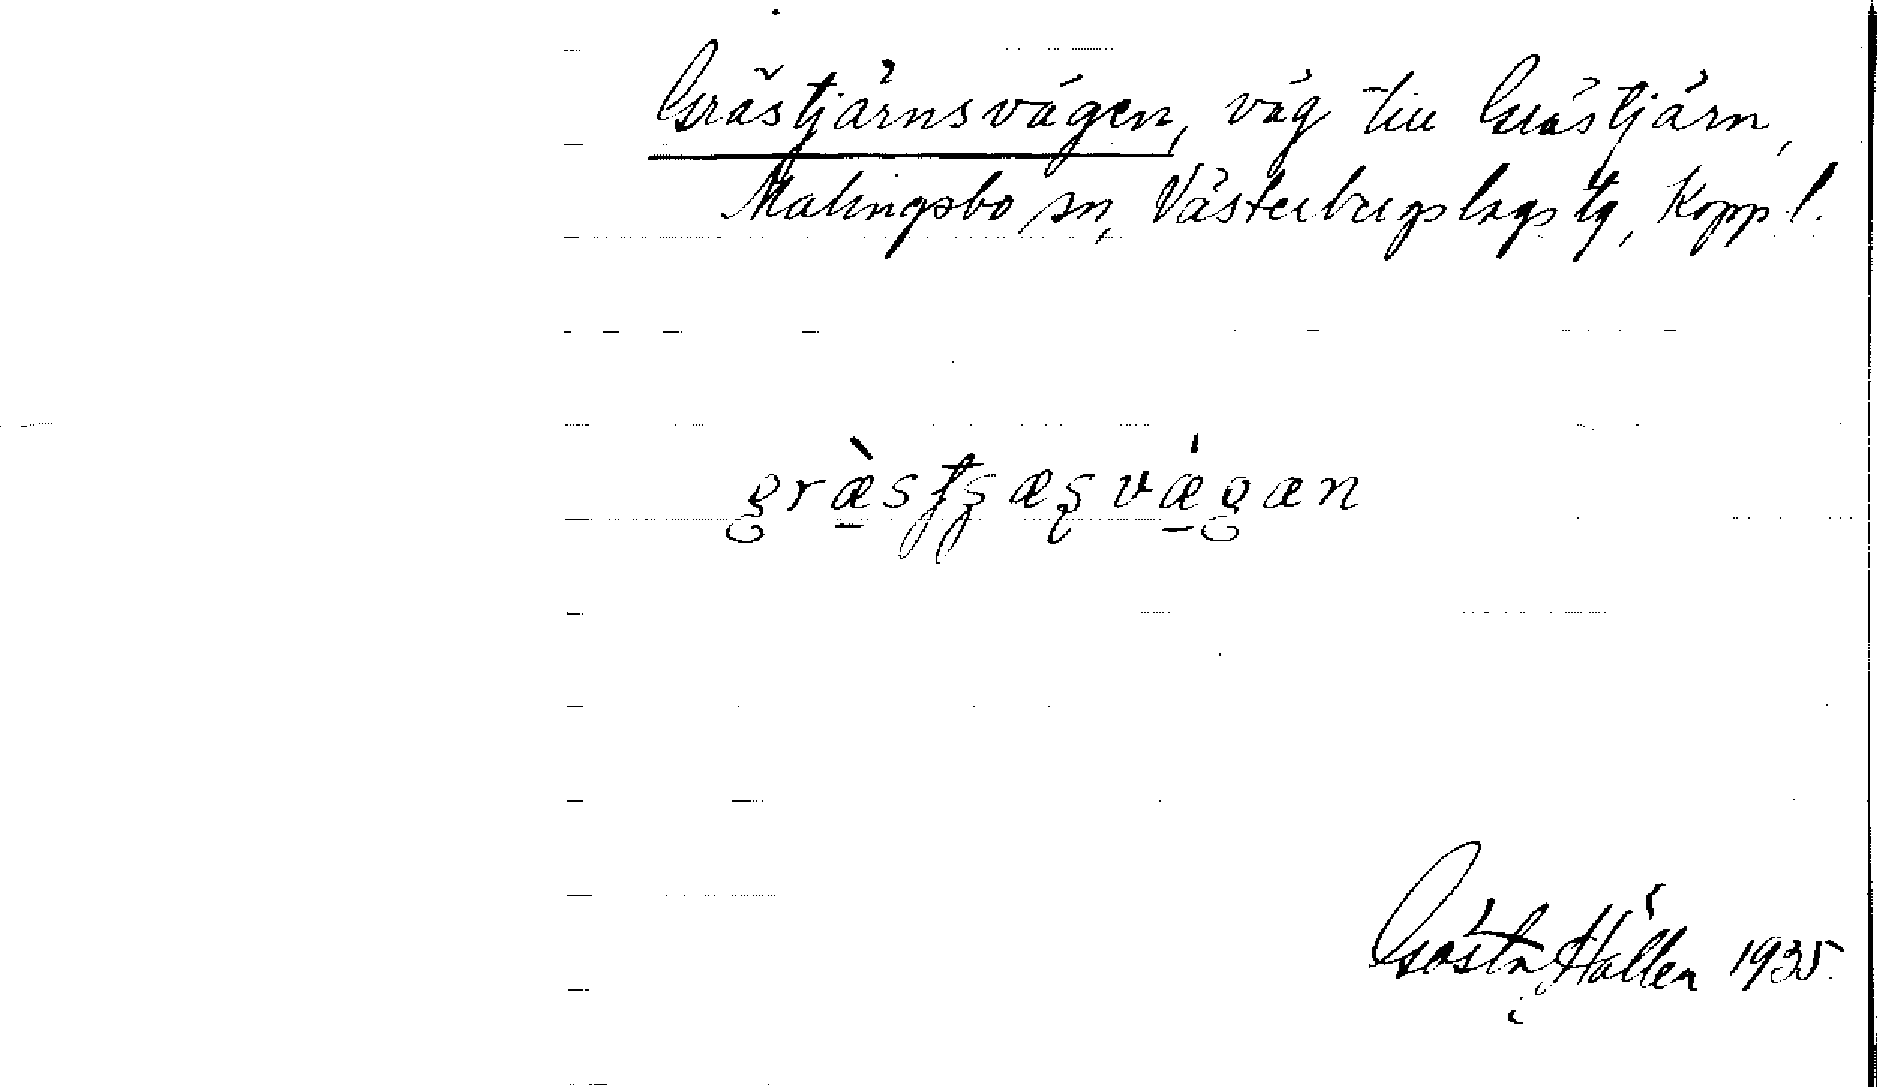 Grästjärnsvägen, väg till Grästjärn,
Malingsbo sn, Västerbergslags tg, Kopp. l.
Gösta Hallen 1935.